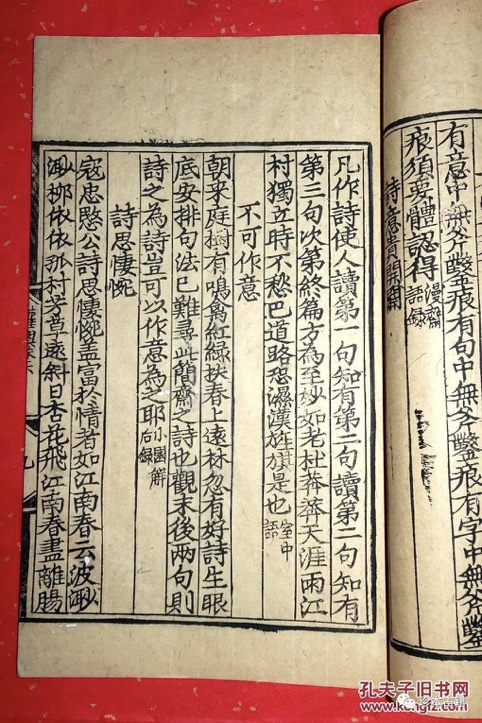 有意中無斧鑿痕有句中無斧鑿痕有字中無斧鑿
痕須要體認得漫齋語錄
詩意貴開闢
凡作詩使人讀第一句知有第二句讀第二句知有
第三句次第終篇方為至妙如老杜莽莽天涯雨江
村獨立時不愁巴道路恐濕漢旌旗是也室中語
不可作意
朝來庭樹有鳴禽紅綠扶春上遠林忽有好詩生眼
底安排句法已難尋此簡齋之詩也觀末後兩句則
詩之為詩豈可以作意為之耶小園解后錄
詩思悽惋
寇忠愍公詩思悽惋蓋富於情者如江南春云波渺
渺柳依依孤村芳草遠斜日杏花飛江南春盡離腸
孔夫子旧书网
www.kongfz.com